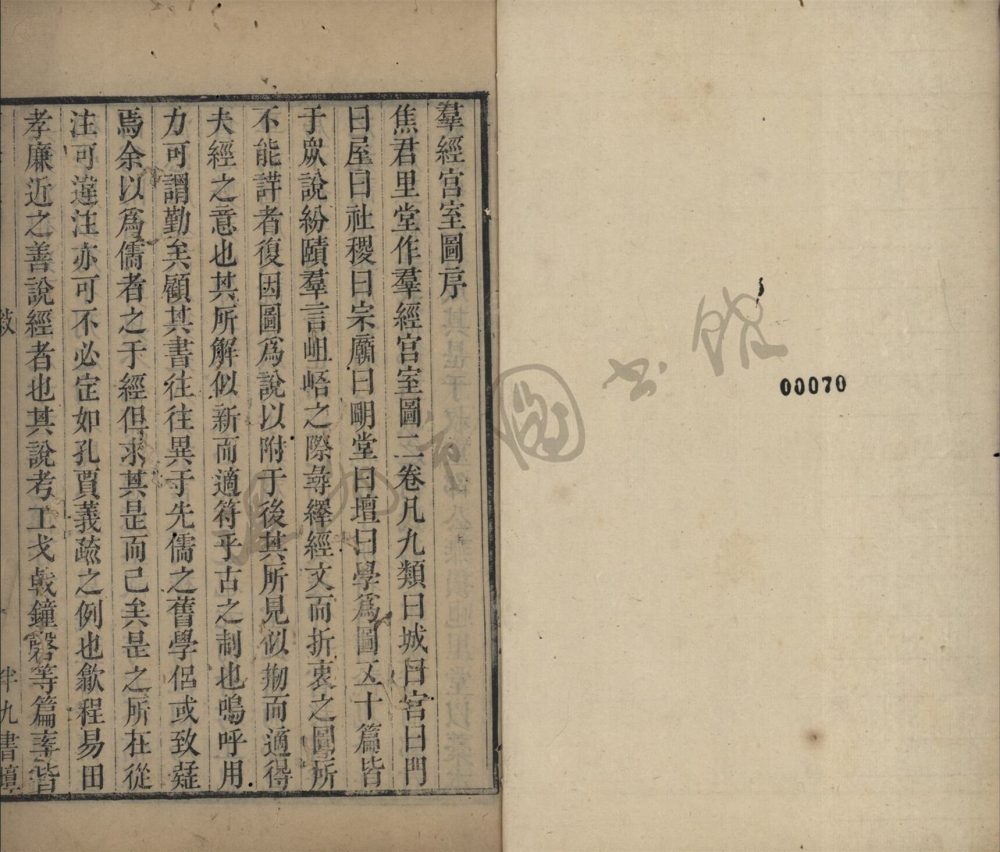 羣經宮室圖序
焦君里堂作羣經宮室圖二卷凡九類曰城曰宮曰門
曰屋曰社稷曰宗廟曰明堂曰壇曰學爲圖五十篇皆
于眾說紛賾羣言岨峿之際尋繹經文而折衷之圖所
不能詳者復因圖爲說以附于後其所見似剏而適得
夫經之意也其所解似新而適符乎古之制也嗚呼用
力可謂勤矣顧其書往往異于先儒之舊學侶或致疑
焉余以爲儒者之于經但求其是而已矣是之所在從
注可違注亦可不必定如孔賈義疏之例也歙程易田
孝廉近之善說經者也其說考工戈戟鐘磬等篇率皆
叙
半九書塾
圖書館
00070